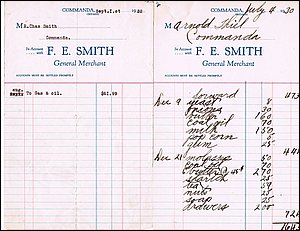 COMMANDA, Sept.1.st 1930
M r.Chas Smith
Commanda.
In Account with F. E. SMITH
General Merchant
ACCOUNTS MUST BE SETTLED PROMPTLY
To Gas & oil. $61.99
COMMANDA, July 4 1930
M Arnold
Commanda
In Account with F. E. SMITH
General Merchant
ACCOUNTS MUST BE SETTLED PROMPTLY
forward 473
Dec 9 yeast 8
onions 30
butter 160
coal oil 70
milk 150
pop corn 5
gum 25
Dec 24 molasses 50
coal oil 70
butter 270
starch 25
tea 59
nuts 25
soap 25
drawers 200